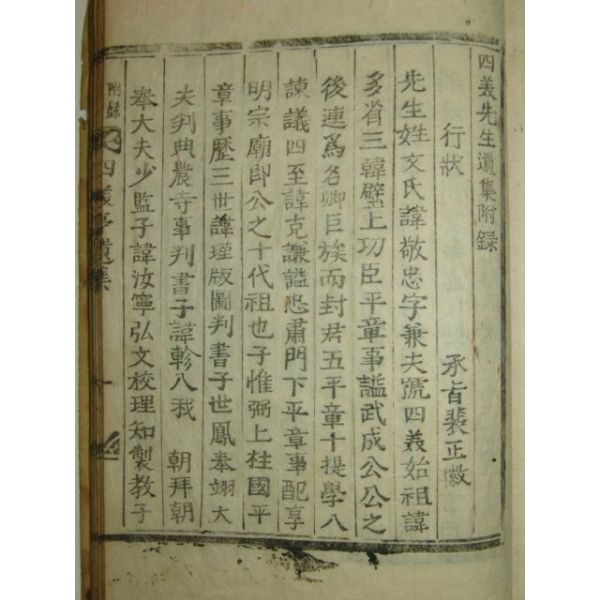 四義先生遺集附錄
行狀
承旨裴正徽
先生姓文氏諱敬忠字兼夫號四義始祖諱
多省三韓壁上功臣平章事謚武成公公之
後連爲名卿巨族而封君五平章十提學八
諫議四至諱克謙謚忠肅門下平章事配享
明宗廟卽公之十代祖也子惟弼上柱國平
章事歷三世諱瑾版圖判書子世鳳奉翊大
夫判典農寺事判書子諱軫入我 朝拜朝
奉大夫少監子諱汝寧弘文校理知製敎子
附錄
四義亭遺集
一